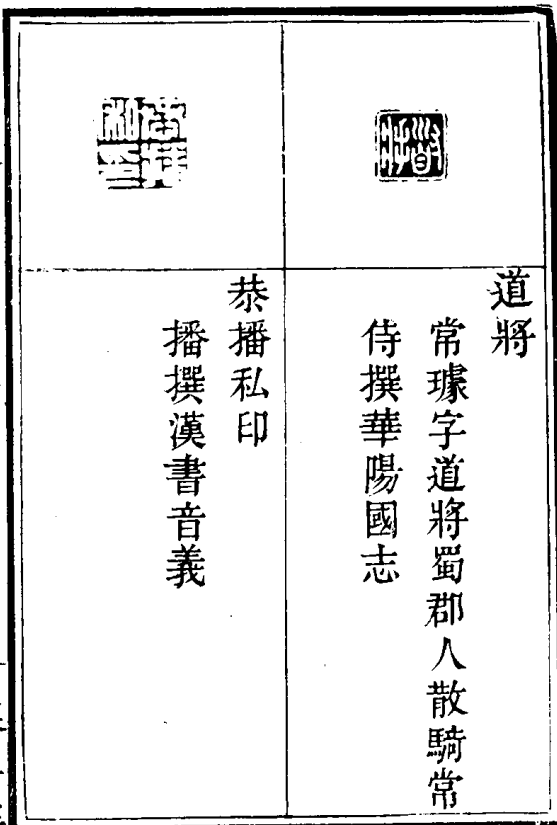 道將
常璩字道將蜀郡人散騎常
侍撰華陽國志
恭播私印
播撰漢書音義